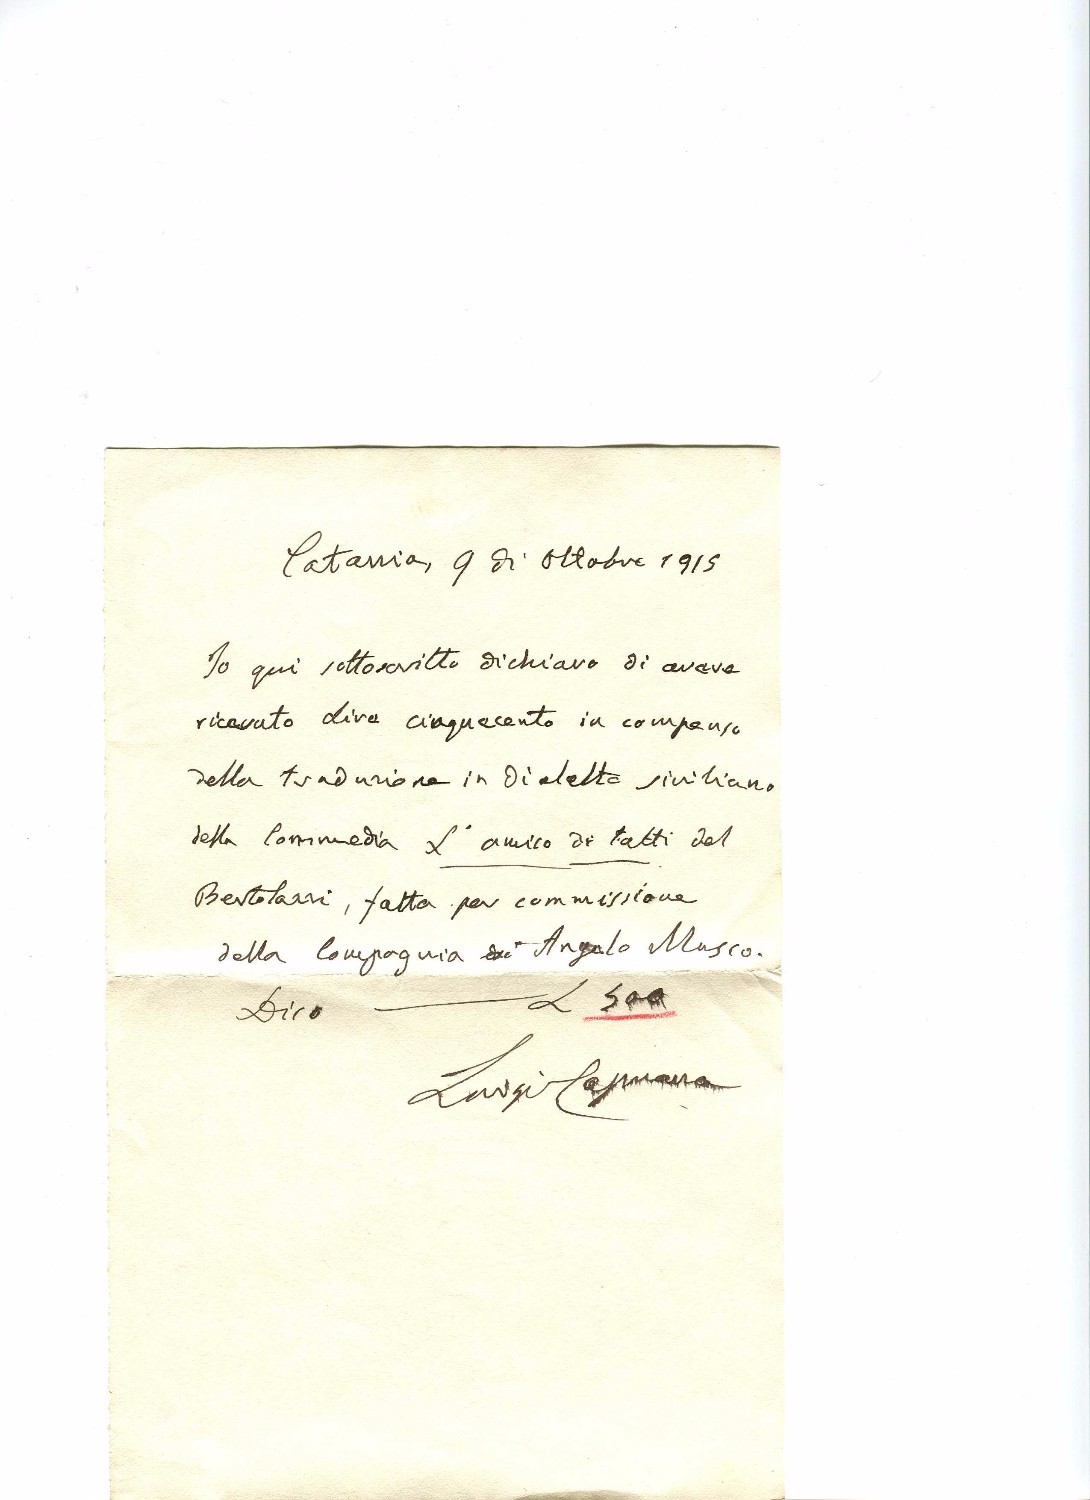 Catania, 9 di Ottobre 1915
Io qui sottoscritto dichiaro di avere
ricevuto Lire cinquecento in compenso
della traduzione in Dialetto siciliano
della Commedia L'amico di tutti del
Bertolazzi, fatta per commissione
della Compagnia di Angelo Musco.
Dico — L 500
Luigi Capuana